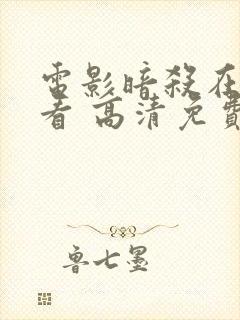 電影暗殺在
看 高清免費
魯七墨